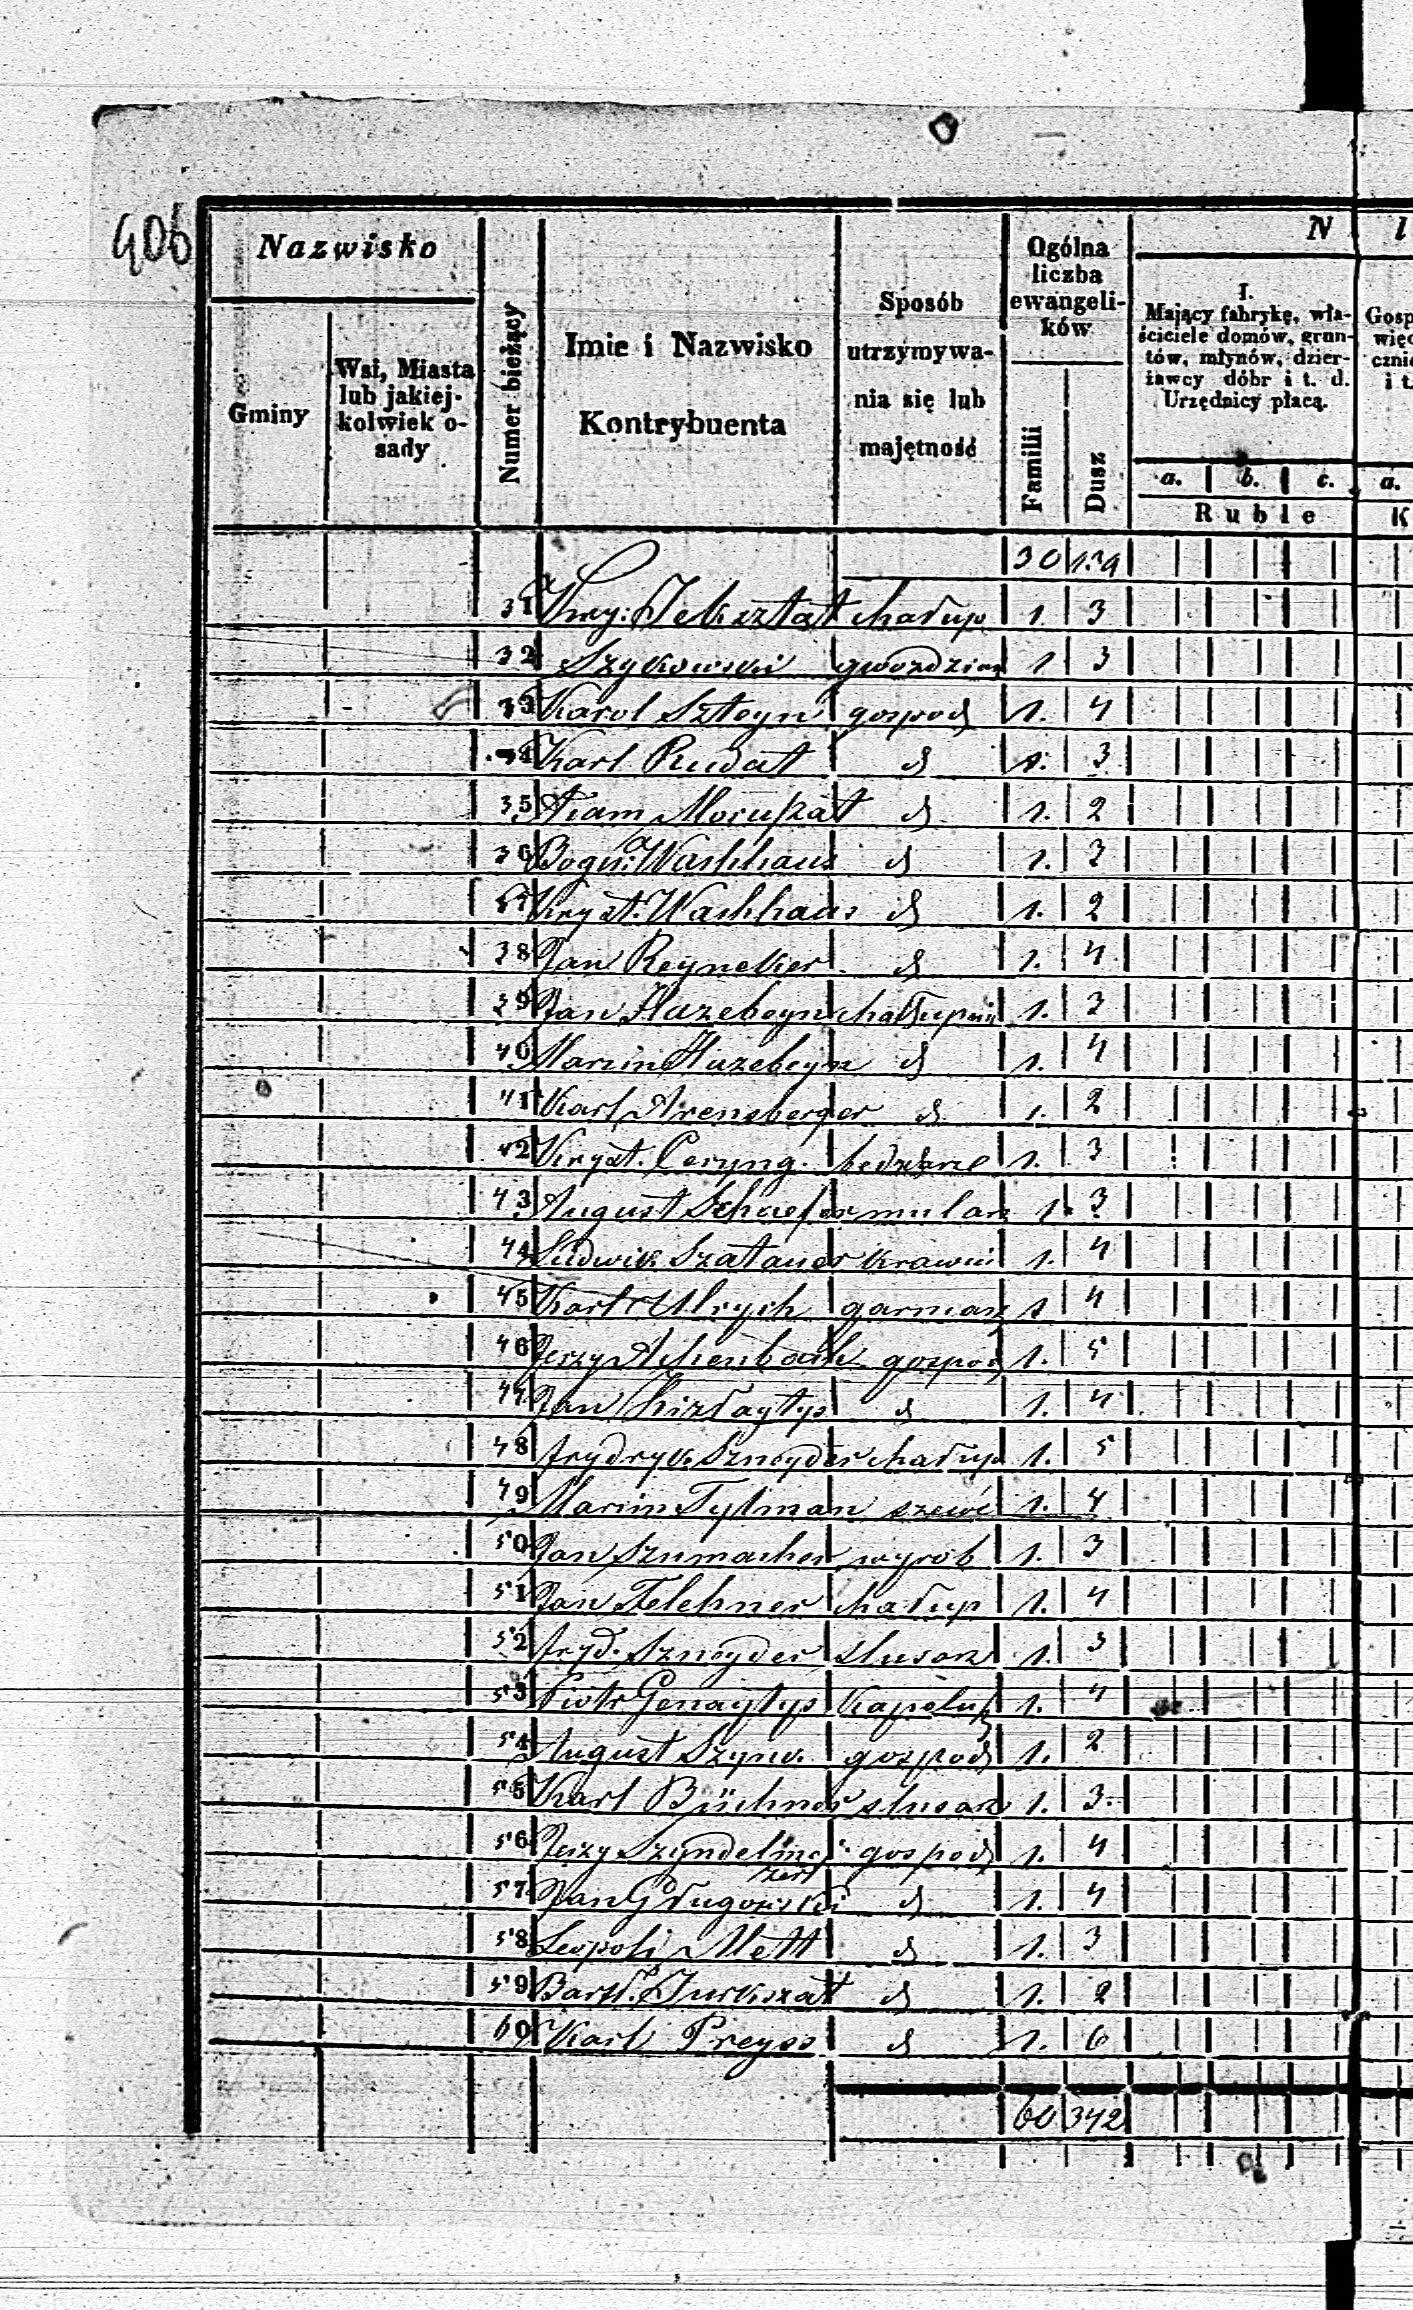 406
Nazwisko
Gminy
Wsi, Miasta
lub jakiej-
kolwiek o-
sady
Numer bieżący
Imie i Nazwisko
Kontrybuenta
Sposób
utrzymywa-
nia się lub
majętność
Ogólna
liczba
ewangeli-
ków
Familii
Dusz
N
I.
Mający fabrykę, wła-
ściciele domów, grun-
tów, młynów, dzier-
żawcy dóbr i t. d.
Urzędnicy płacą.
a. b. c.
Ruble
l
Gosp
więc
cznie
i t.
a.
K
30
31 Jeksztat chałup 1. 3
32 Szykowski gwozdziar 1 3
33 Karol Szteyn gospod 1. 4
34 Karl Rudat d 1. 3
35 d 1. 2
36 Bogu. Wachhaus d 1. 3
37 Kryst. Wachhaus d 1. 2
38 Jan Reyneker d 1. 4
39 Jan Hazebeyn chałupni 1. 3
40 Marcin Hazebeyn d 1. 4
41 Karl Arensberger d 1. 2
42 Kryst. Ceryng. 1. 3
43 August Schaefer mular 1. 3
44 Ludwik Szatauer krawiec 1. 4
45 Karl Ulrych garncarz 1 4
46 Jerzy Achenbach gospod 1. 5
47 Jan d 1. 4
48 Frydryk Sznoyder chałup 1. 5
49 Marcin Tylman szewc 1. 4
50 Jan Szumacher wyrob 1. 3
51 Jan Felchner chałup 1. 4
52 Fryd. Sznoyder slusarz 1. 3
53 Piotr Genaytys Kapelusz 1. 4
54 August gospod 1. 2
55 Karl Büchner slusarz 1. 3.
56 Jerzy Szyndelmejzer gospod 1. 4
57 Jan Gługowski d 1. 4
58 Leopold Mett d 1. 3
59 Bartł. Jurkszat d 1. 2
60 Karl Preyss d 1. 6
60 342